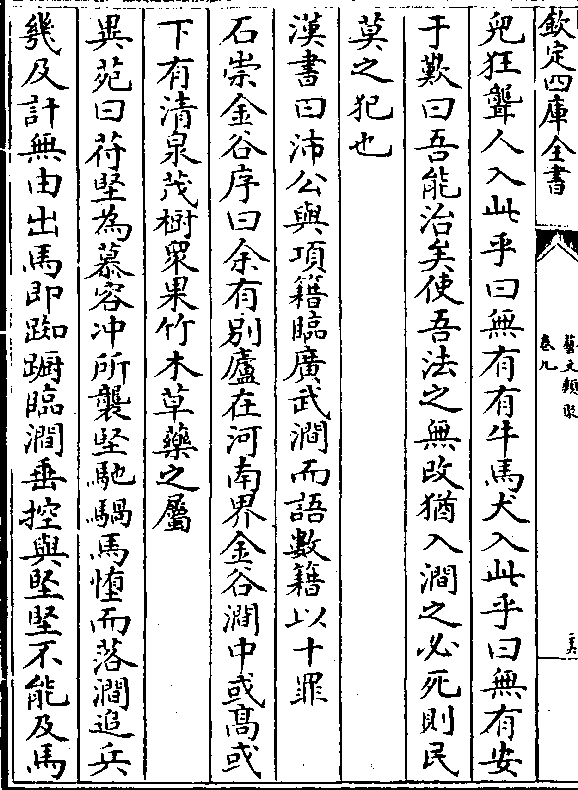 欽定四庫全書
藝文類聚
卷九
兕狂聾人入此乎曰無有有牛馬犬入此乎曰無有安
于歎曰吾能治矣使吾法之無改猶入澗之必死則民
莫之犯也
漢書曰沛公與項籍臨廣武澗而語數籍以十罪
石崇金谷序曰余有別廬在河南界金谷澗中或髙或
下有清泉茂樹衆果竹木草藥之屬
異苑曰苻堅為慕容冲所襲堅馳騧馬墮而落澗追兵
幾及計無由出馬即踟蹰臨澗垂控與堅堅不能及馬